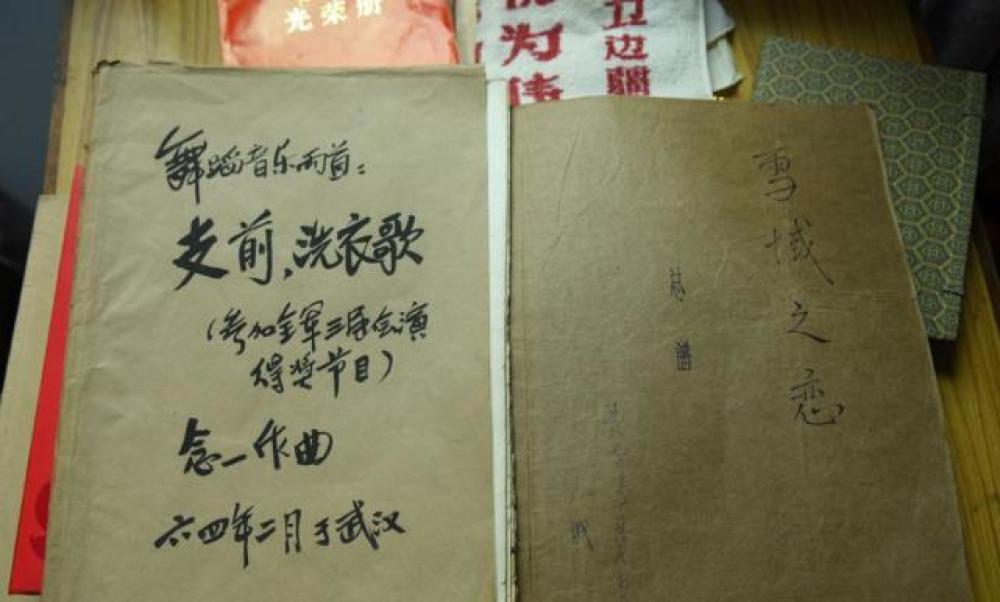 光荣册
为
卫边疆
舞蹈音乐两首：
支前、洗衣歌
（参加全军三届会演
得奖节目）
念一作曲
六四年二月于武汉
雪域之恋
总谱